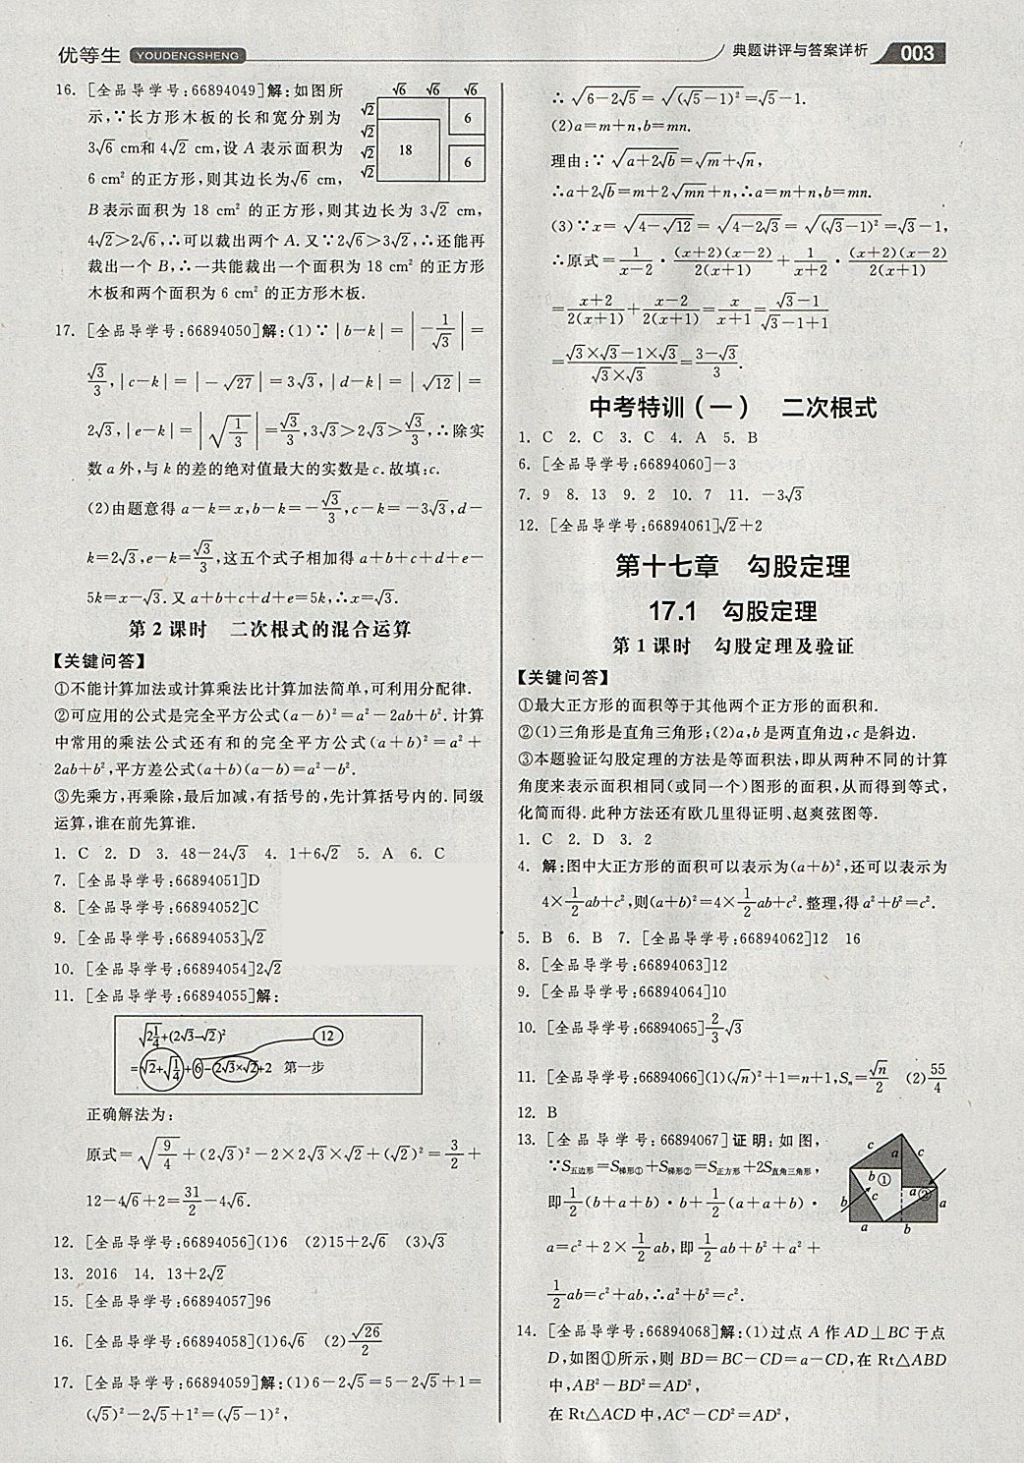 优等生 YOUDENGSHENG
典题讲评与答案详析 003
16. [全品导学号:66894049]解:如图所
示,∵长方形木板的长和宽分别为
3√6 cm和4√2 cm,设 A 表示面积为
6 cm² 的正方形,则其边长为√6 cm,
√6 √6 √6
√2
√2
√2
√2
18
6
6
B表示面积为 18 cm² 的正方形,则其边长为 3√2 cm,
4√2>2√6,∴可以裁出两个 A.又∵2√6>3√2,∴还能再
裁出一个 B,∴一共能裁出一个面积为 18 cm² 的正方形
木板和两个面积为 6 cm² 的正方形木板.
17. [全品导学号:66894050]解:(1)∵|b-k|=|-1/√3|=
√3/3,|c-k|=|-√27|=3√3,|d-k|=|√12|=
2√3,|e-k|=|√(1/3)|=√3/3,3√3>2√3>√3/3,∴除实
数 a 外,与 k 的差的绝对值最大的实数是 c.故填:c.
(2)由题意得 a-k=x,b-k=-√3/3,c-k=-3√3,d-
k=2√3,e-k=√3/3,这五个式子相加得 a+b+c+d+e-
5k=x-√3.又 a+b+c+d+e=5k,∴x=√3.
第 2 课时 二次根式的混合运算
【关键问答】
①不能计算加法或计算乘法比计算加法简单,可利用分配律.
②可应用的公式是完全平方公式(a-b)²=a²-2ab+b².计算
中常用的乘法公式还有和的完全平方公式(a+b)²=a²+
2ab+b²,平方差公式(a+b)(a-b)=a²-b².
③先乘方,再乘除,最后加减,有括号的,先计算括号内的.同级
运算,谁在前先算谁.
1. C 2. D 3. 48-24√3 4. 1+6√2 5. A 6. C
7. [全品导学号:66894051]D
8. [全品导学号:66894052]C
9. [全品导学号:66894053]√2
10. [全品导学号:66894054]2√2
11. [全品导学号:66894055]解:
√(2 1/4)+(2√3-√2)² 12
=√2+√(1/4)+6-2√3×√2+2 第一步
正确解法为:
原式=√(9/4)+(2√3)²-2×2√3×√2+(√2)²=3/2+
12-4√6+2=31/2-4√6.
12. [全品导学号:66894056](1)6 (2)15+2√6 (3)√3
13. 2016 14. 13+2√2
15. [全品导学号:66894057]96
16. [全品导学号:66894058](1)6√6 (2)√26/2
17. [全品导学号:66894059]解:(1)6-2√5=5-2√5+1=
(√5)²-2√5+1²=(√5-1)²,
∴√(6-2√5)=√((√5-1)²)=√5-1.
(2)a=m+n,b=mn.
理由:∵√(a+2√b)=√m+√n,
∴a+2√b=m+2√mn+n,∴a=m+n,b=mn.
(3)∵x=√(4-√12)=√(4-2√3)=√((√3-1)²)=√3-1,
∴原式=1/(x-2)·(x+2)(x-2)/2(x+1)+1/(x+2)·(x+2)(x-2)/2(x+1)
=(x+2)/2(x+1)+(x-2)/2(x+1)=x/(x+1)=(√3-1)/(√3-1+1)
=(√3×√3-1×√3)/(√3×√3)=(3-√3)/3.
中考特训(一) 二次根式
1. C 2. C 3. C 4. A 5. B
6. [全品导学号:66894060]-3
7. 9 8. 13 9. 2 10. 7 11. -3√3
12. [全品导学号:66894061]√2+2
第十七章 勾股定理
17.1 勾股定理
第 1 课时 勾股定理及验证
【关键问答】
①最大正方形的面积等于其他两个正方形的面积和.
②(1)三角形是直角三角形;(2)a,b是两直角边,c是斜边.
③本题验证勾股定理的方法是等面积法,即从两种不同的计算
角度来表示面积相同(或同一个)图形的面积,从而得到等式,
化简而得.此种方法还有欧几里得证明、赵爽弦图等.
1. C 2. D 3. 2
4. 解:图中大正方形的面积可以表示为(a+b)²,还可以表示为
4×1/2ab+c²,则(a+b)²=4×1/2ab+c².整理,得 a²+b²=c².
5. B 6. B 7. [全品导学号:66894062]12 16
8. [全品导学号:66894063]12
9. [全品导学号:66894064]10
10. [全品导学号:66894065]2/3√3
11. [全品导学号:66894066](1)(√n)²+1=n+1,Sₙ=√n/2 (2)55/4
12. B
13. [全品导学号:66894067]证明:如图,
∵S五边形=S梯形①+S梯形②=S正方形+2S直角三角形,
即1/2(b+a+b)·b+1/2(a+a+b)·
a=c²+2×1/2ab,即1/2ab+b²+a²+
1/2ab=c²+ab,∴a²+b²=c².
c a c
b ① a ②
b c a
a b
14. [全品导学号:66894068]解:(1)过点 A 作 AD⊥BC 于点
D,如图①所示,则 BD=BC-CD=a-CD,在 Rt△ABD
中,AB²-BD²=AD²,
在 Rt△ACD 中,AC²-CD²=AD²,